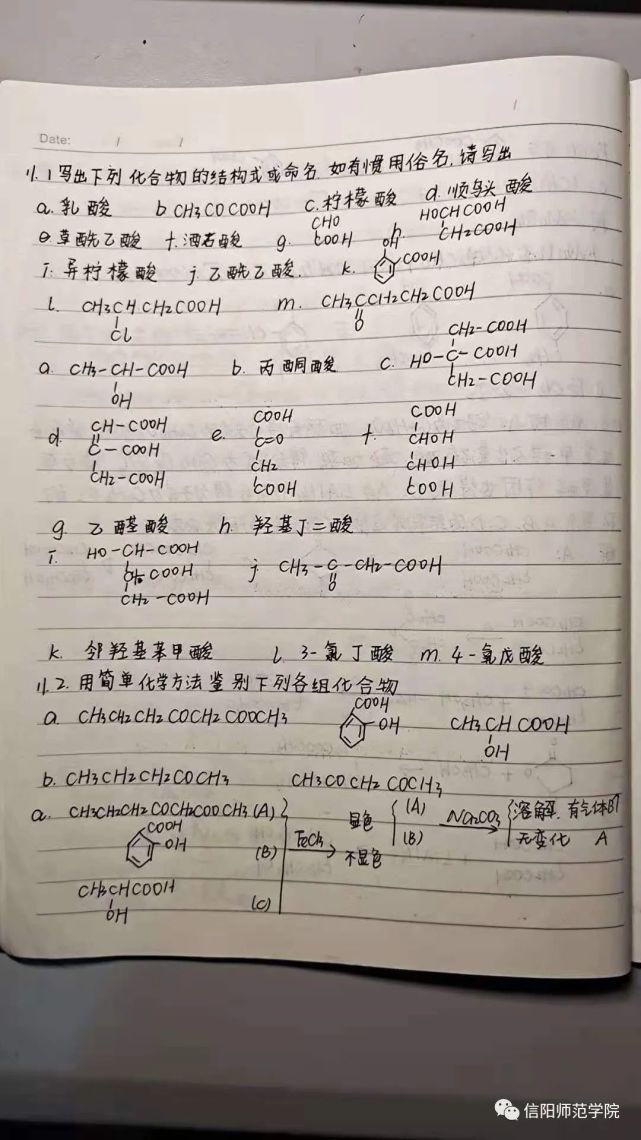 Date: / /
11.1写出下列化合物的结构式或命名,如有惯用俗名,请写出
a.乳酸 b CH3COCOOH c.柠檬酸 d.顺乌头酸
e.草酰乙酸 f.酒石酸 g. CHO COOH h. HOCHCOOH CH2COOH
i.异柠檬酸 j.乙酰乙酸. k. OH COOH
l. CH3CHCH2COOH Cl m. CH3CCH2CH2COOH O
a. CH3-CH-COOH OH b. 丙酮酸 c. CH2-COOH HO-C-COOH CH2-COOH
d. CH-COOH C-COOH CH2-COOH e. COOH C=O CH2 COOH f. COOH CHOH CHOH COOH
g. 乙醛酸 h. 羟基丁二酸
i. HO-CH-COOH COOH CH2-COOH j. CH3-C-CH2-COOH O
k. 邻羟基苯甲酸 l. 3-氯丁酸 m. 4-氧戊酸
11.2.用简单化学方法鉴别下列各组化合物
a. CH3CH2CH2COCH2COOCH3 COOH OH CH3CHCOOH OH
b. CH3CH2CH2COCH3 CH3COCH2COCH3
a. CH3CH2CH2COCH2COOCH3 (A) 显色 (A) Na2CO3 溶解,有气体B↑
COOH OH (B) FeCl3 不显色 (B) 无变化 A
CH3CHCOOH OH (C)
信阳师范学院